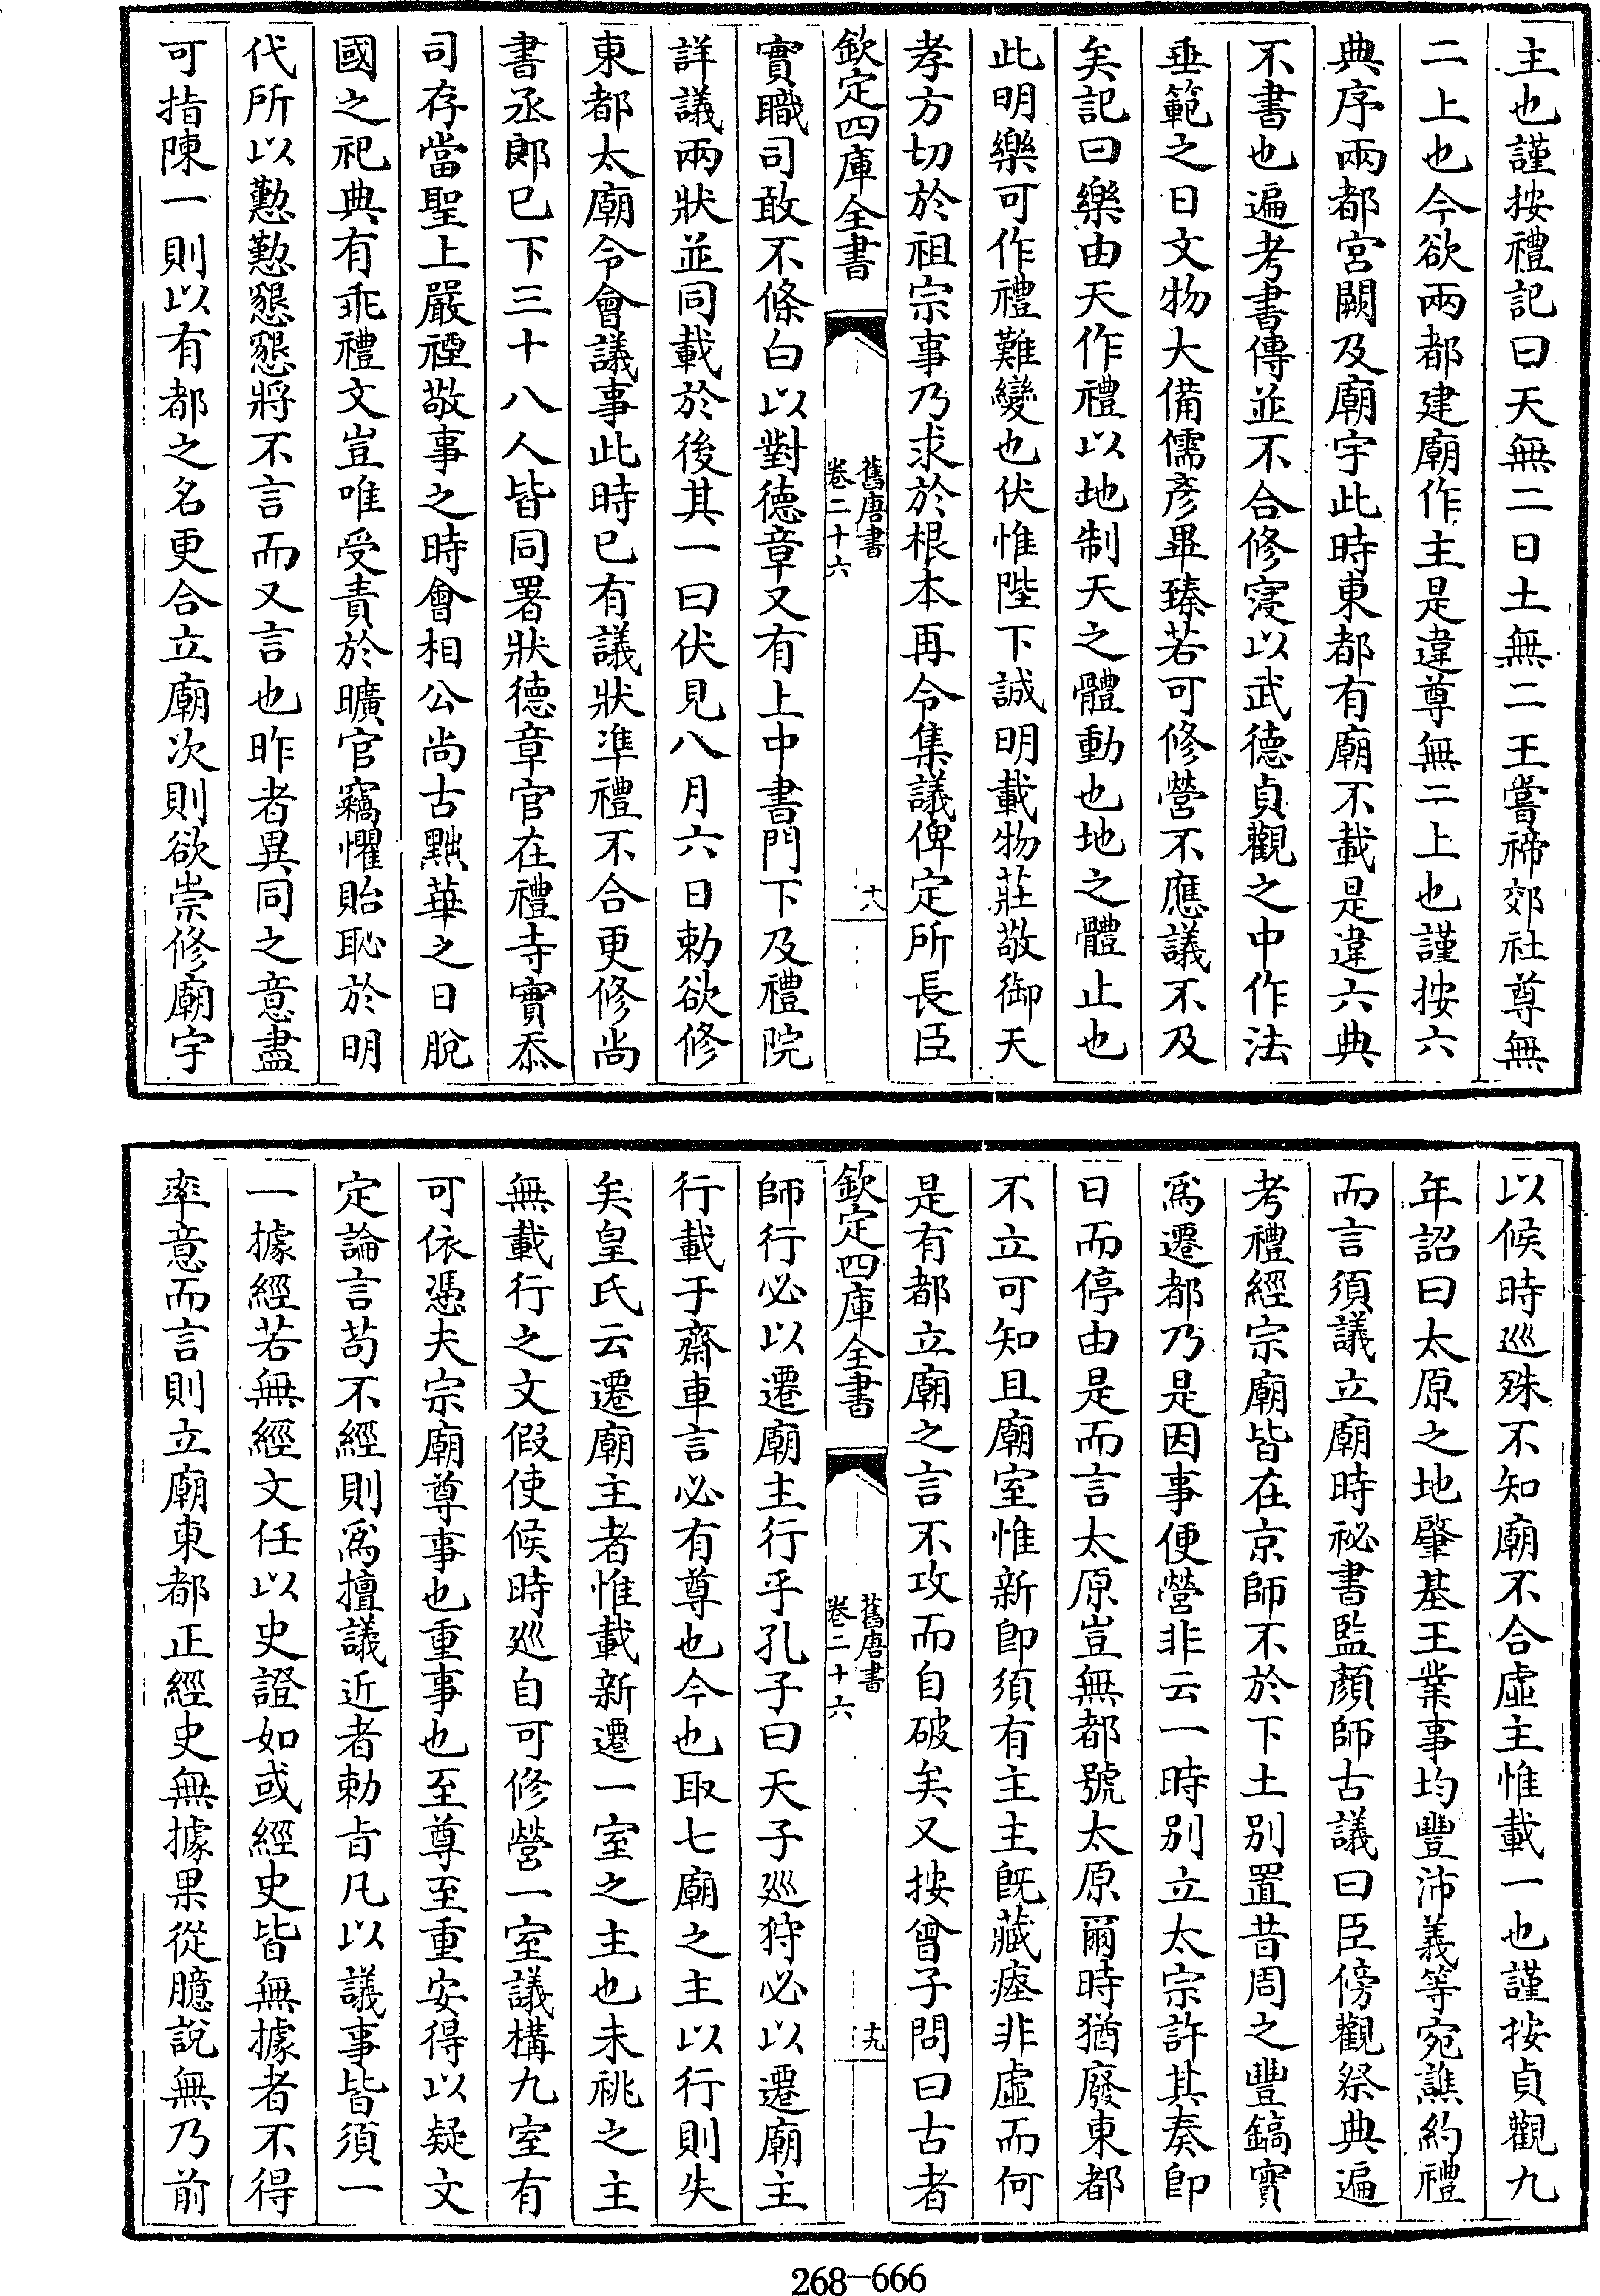 主也謹按禮記曰天無二日土無二王嘗禘郊社尊無
二上也今欲兩都建廟作主是違尊無二上也謹按六
典序兩都宮闕及廟宇此時東都有廟不載是違六典
不書也遍考書傳並不合修寖以武德貞觀之中作法
垂範之日文物大備儒彥畢臻若可修營不應議不及
矣記曰樂由天作禮以地制天之體動也地之體止也
此明樂可作禮難變也伏惟陛下誠明載物莊敬御天
孝方切於祖宗事乃求於根本再令集議俾定所長臣
欽定四庫全書
舊唐書
卷二十六
十八
實職司敢不條白以對德章又有上中書門下及禮院
詳議兩狀並同載於後其一曰伏見八月六日勅欲修
東都太廟令會議事此時已有議狀準禮不合更修尚
書丞郎已下三十八人皆同署狀德章官在禮寺實忝
司存當聖上嚴禋敬事之時會相公尚古黜華之日脫
國之祀典有乖禮文豈唯受責於曠官竊懼貽恥於明
代所以懃懃懇懇將不言而又言也昨者異同之意盡
可指陳一則以有都之名更合立廟次則欲崇修廟宇
以候時巡殊不知廟不合虛主惟載一也謹按貞觀九
年詔曰太原之地肇基王業事均豐沛義等宛譙約禮
而言須議立廟時祕書監顏師古議曰臣傍觀祭典遍
考禮經宗廟皆在京師不於下土別置昔周之豐鎬實
爲遷都乃是因事便營非云一時別立太宗許其奏卽
日而停由是而言太原豈無都號太原爾時猶廢東都
不立可知且廟室惟新卽須有主主旣藏瘞非虛而何
是有都立廟之言不攻而自破矣又按曾子問曰古者
欽定四庫全書
舊唐書
卷二十六
十九
師行必以遷廟主行乎孔子曰天子巡狩必以遷廟主
行載于齋車言必有尊也今也取七廟之主以行則失
矣皇氏云遷廟主者惟載新遷一室之主也未祧之主
無載行之文假使候時巡自可修營一室議構九室有
可依憑夫宗廟尊事也重事也至尊至重安得以疑文
定論言苟不經則爲擅議近者勅旨凡以議事皆須一
一據經若無經文任以史證如或經史皆無據者不得
率意而言則立廟東都正經史無據果從臆說無乃前
268-666